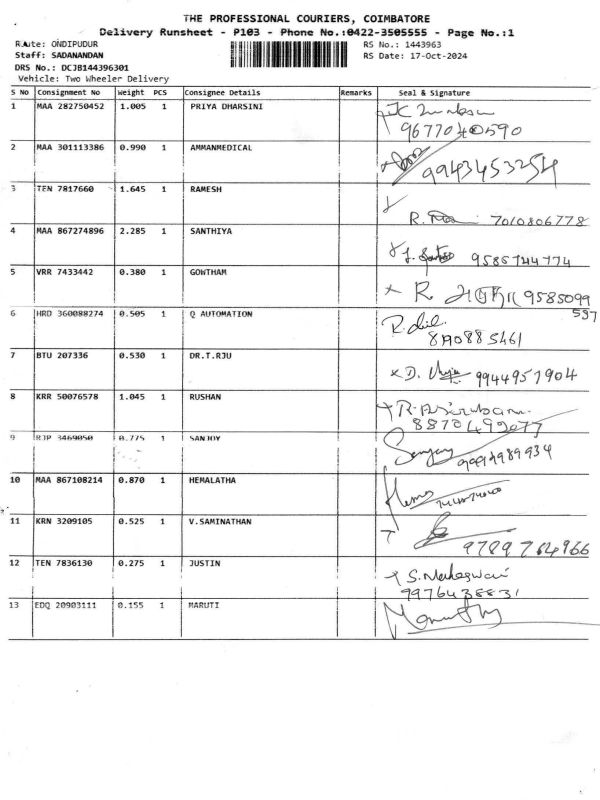 THE PROFESSIONAL COURIERS, COIMBATORE
Delivery Runsheet - P103 - Phone No.:0422-3505555 - Page No.:1
Route: ONDIPUDUR
RS No.: 1443963
Staff: SADANANDAN
RS Date: 17-Oct-2024
DRS No.: DCJB144396301
Vehicle: Two Wheeler Delivery
S No Consignment No Weight PCS Consignee Details Remarks Seal & Signature
1 MAA 282750452 1.005 1 PRIYA DHARSINI
9677040590
2 MAA 301113386 0.990 1 AMMANMEDICAL
9943453254
3 TEN 7817660 1.645 1 RAMESH
R. 7010806778
4 MAA 867274896 2.285 1 SANTHIYA
9585744774
5 VRR 7433442 0.380 1 GOWTHAM
R 9585099
597
6 HRD 360088274 0.505 1 Q AUTOMATION
R.
7 BTU 207336 0.530 1 DR.T.RJU
D. 9944957904
8 KRR 50076578 1.045 1 RUSHAN
8870492077
9 RJP 3469050 0.775 1 SANJOY
Sanjoy 9994989934
10 MAA 867108214 0.870 1 HEMALATHA
Hema
11 KRN 3209105 0.525 1 V.SAMINATHAN
9789764966
12 TEN 7836130 0.275 1 JUSTIN
S. Maheswari
9976438831
13 EDQ 20903111 0.155 1 MARUTI